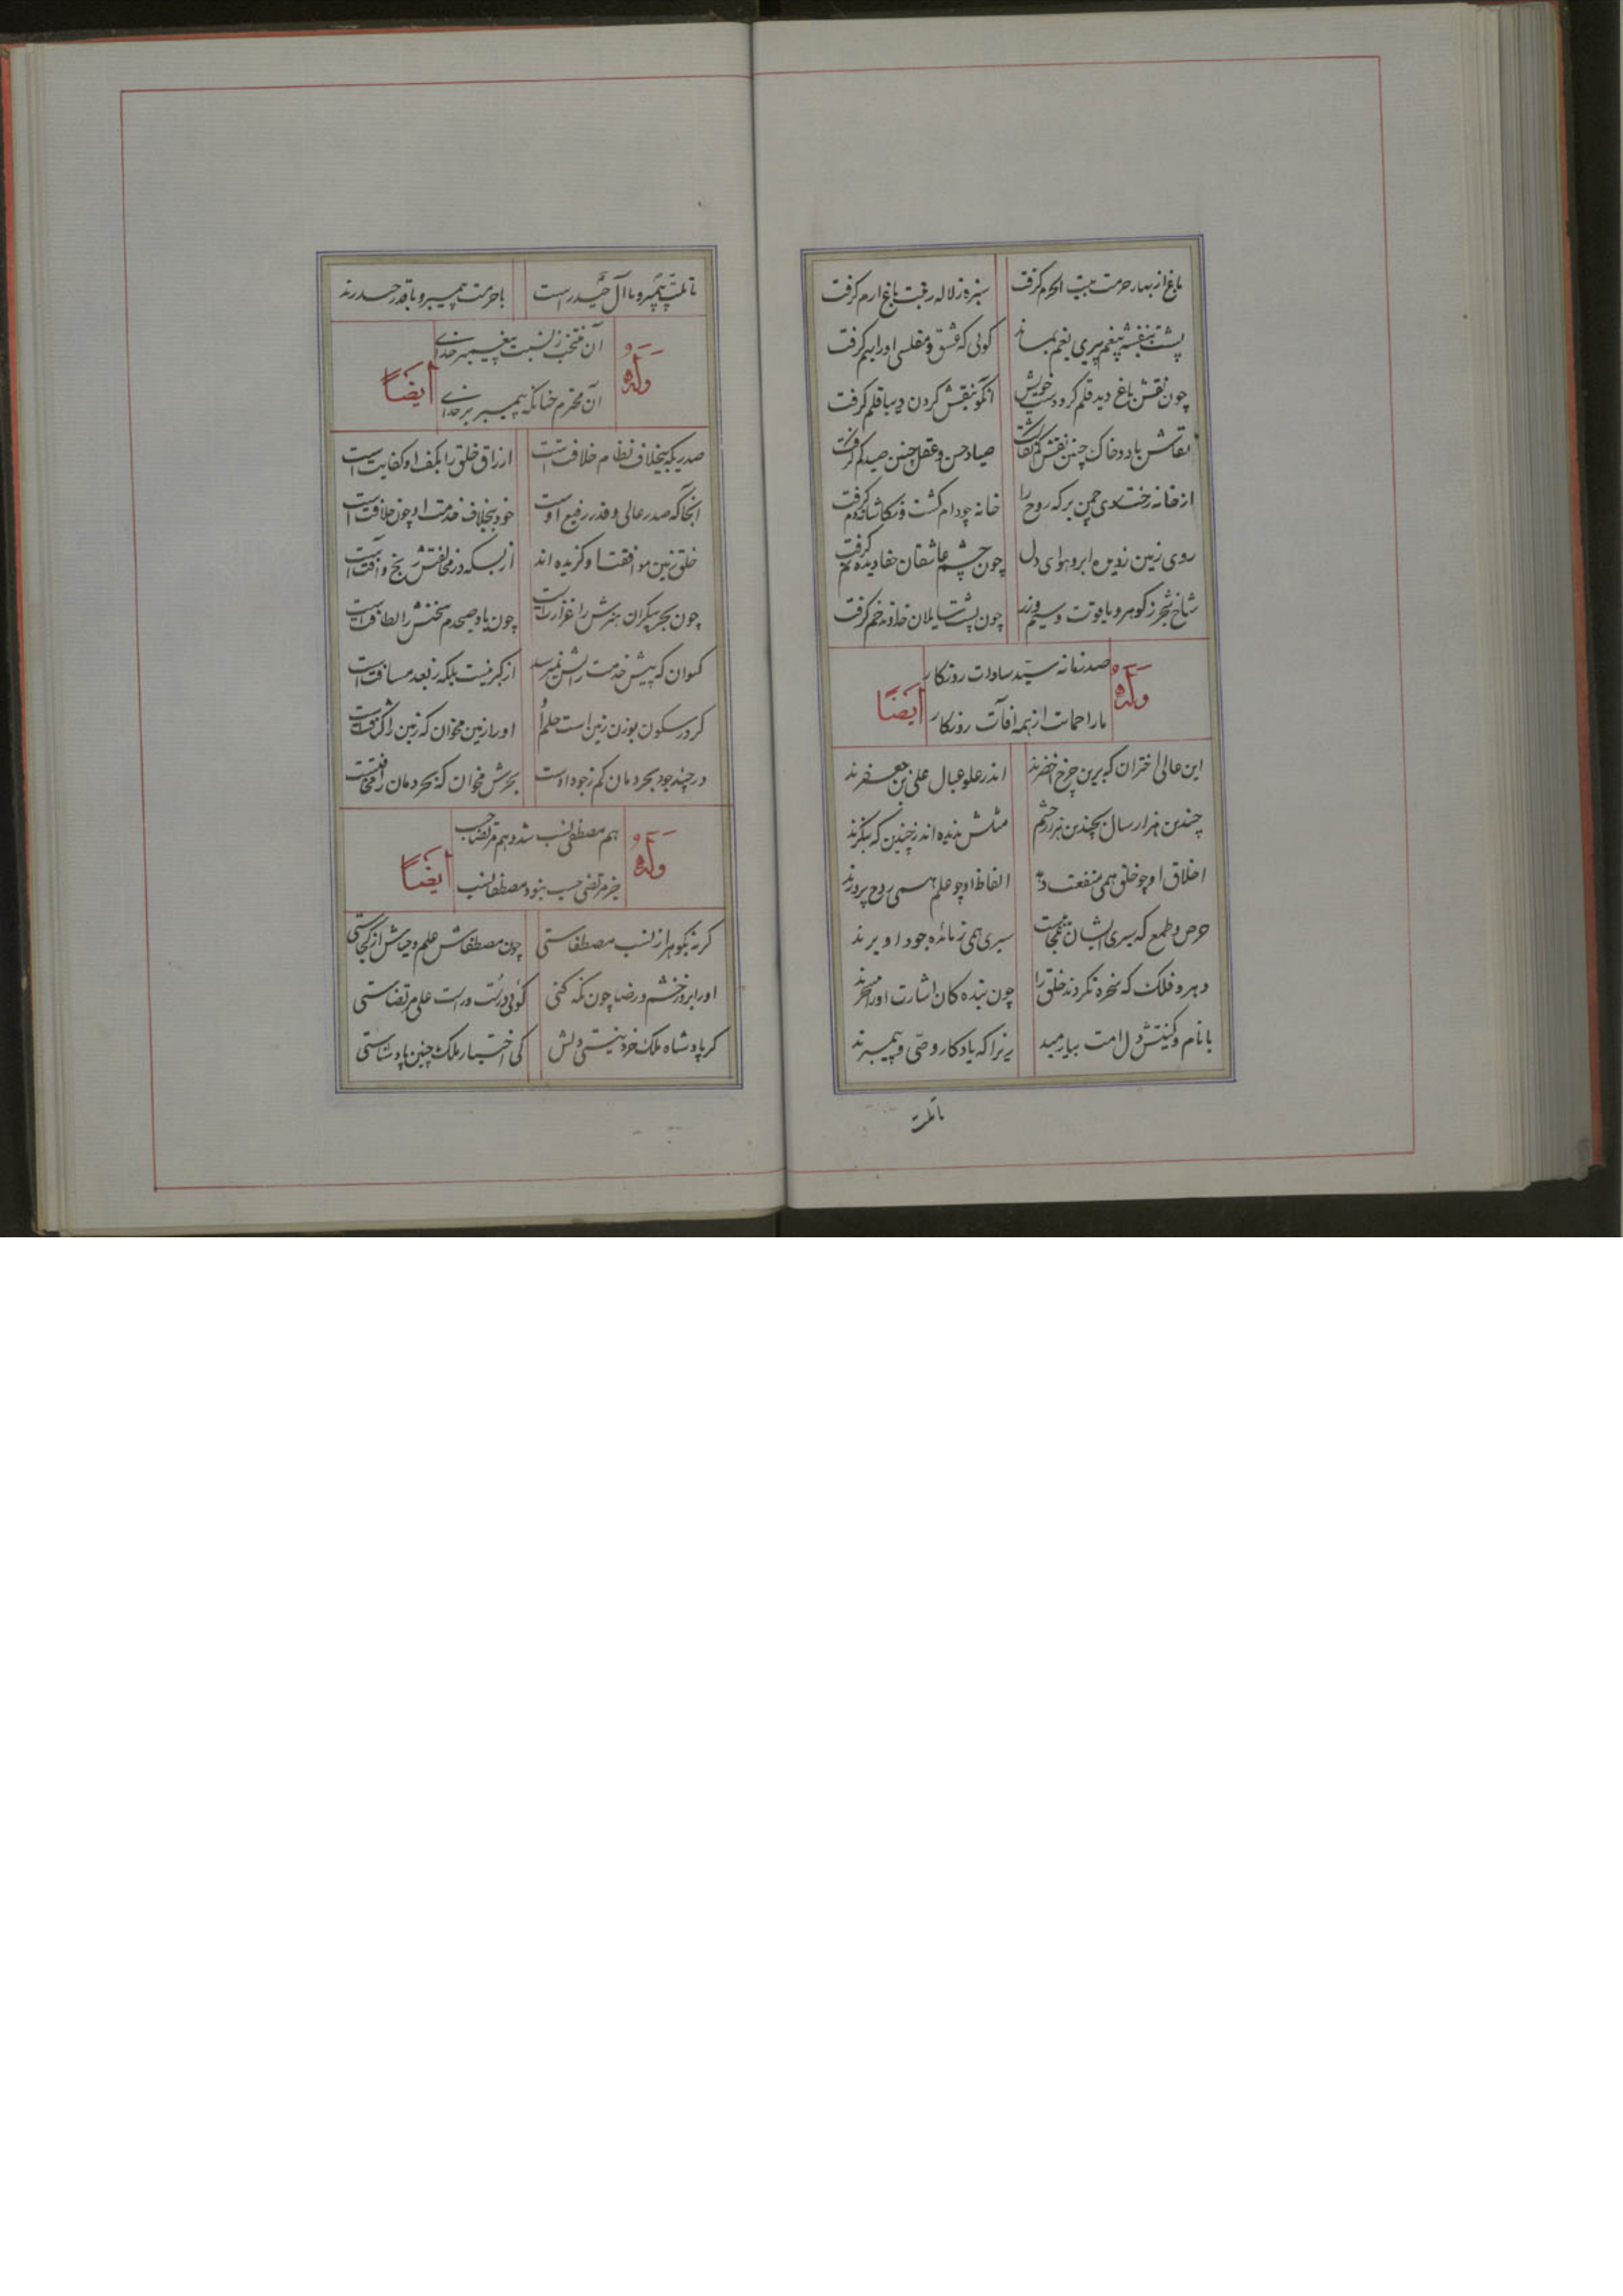 باغ از بهار حرمت بیت الحرم گرفت سبزه ز لاله زینت باغ ارم گرفت
پشت بنفشه پیری بغم بماند گوئی که عشق و مفلسی او را بهم گرفت
چون نقش باغ دید قلم کرد دست خویش آنکو بنقش کردن دیبا قلم گرفت
نقاش باد و خاک چنین نقش کم نگاشت صیاد حسن و عقل چنین صید کم گرفت
از خانه رخت سوی چمن بر که روح را خانه چو دام گشت و ز کاشانه دم گرفت
روی زمین ز دیده ابر و هوای دل چون چشم عاشقان جفا دیده نم گرفت
شاخ شجر ز گوهر و یاقوت و سیم و زر چون پشت سایلان خداوند خم گرفت
وله صدر زمانه سید سادات روزگار
ما را حمایت از همه آفات روزگار ایضاً
این عالی اختران که برین چرخ اخضرند اندر علو عیال علی بن جعفرند
چندین هزار سال بچندین هزار چشم مثلش ندیده اند چنین که بنگرند
اخلاق او چو خلق همی منفعت دهند الفاظ او چو علم همی روح پرورند
حرص و طمع که سیری ایشان سیری همی ز مائده جود او برند
دهر و فلک که سخره نکردند خلق را چون بنده کان اشارت او را مسخرند
با نام و کنیتش دل امت بیارمید زیرا که یادگار وصی و پیمبرند
تا ملت
تا ملت پیمبر و تا آل حیدر است با حرمت پیمبر و با قدر حیدرند
وله آن منتخب ز نسبت پیغمبر خدای
آن محترم چنانکه پیمبر بر خدای ایضاً
صدریکه بیخلاف نظام خلافتست ارزاق خلق را بکف او کفایتست
آنجا که صدر عالی و قدر رفیع اوست خود بیخلاف خدمت او چون خلافتست
خلق زمین موافقت او گزیده اند از بسکه در مخالفتش رنج و آفتست
چون بحر بیکران هنرش را غزارتست چون باد صبحدم سخنش را لطافتست
کیوان که پیش خدمت رایش نمیرسد از کبر نیست بلکه ز بعد مسافتست
گر در سکون بوزن زمین است حلم او او را زمین مخوان که زمین را کثافتست
در چند جود بحر دمان کم ز جود اوست بحرش مخوان که بحر دمان را مخافتست
وله هم مصطفی نسب شد و هم مرتضی حسب
جز مرتضی حسب نبود مصطفی نسب ایضاً
گر نه بگوهر از نسب مصطفاستی چون مصطفاش علم و حیاش از کجاستی
او را بروز خشم و رضا چون نگه کنی گوئی درست و راست علی مرتضاستی
گر پادشاه ملک خرد نیستی دلش کی اختیار ملک چنین پادشاستی